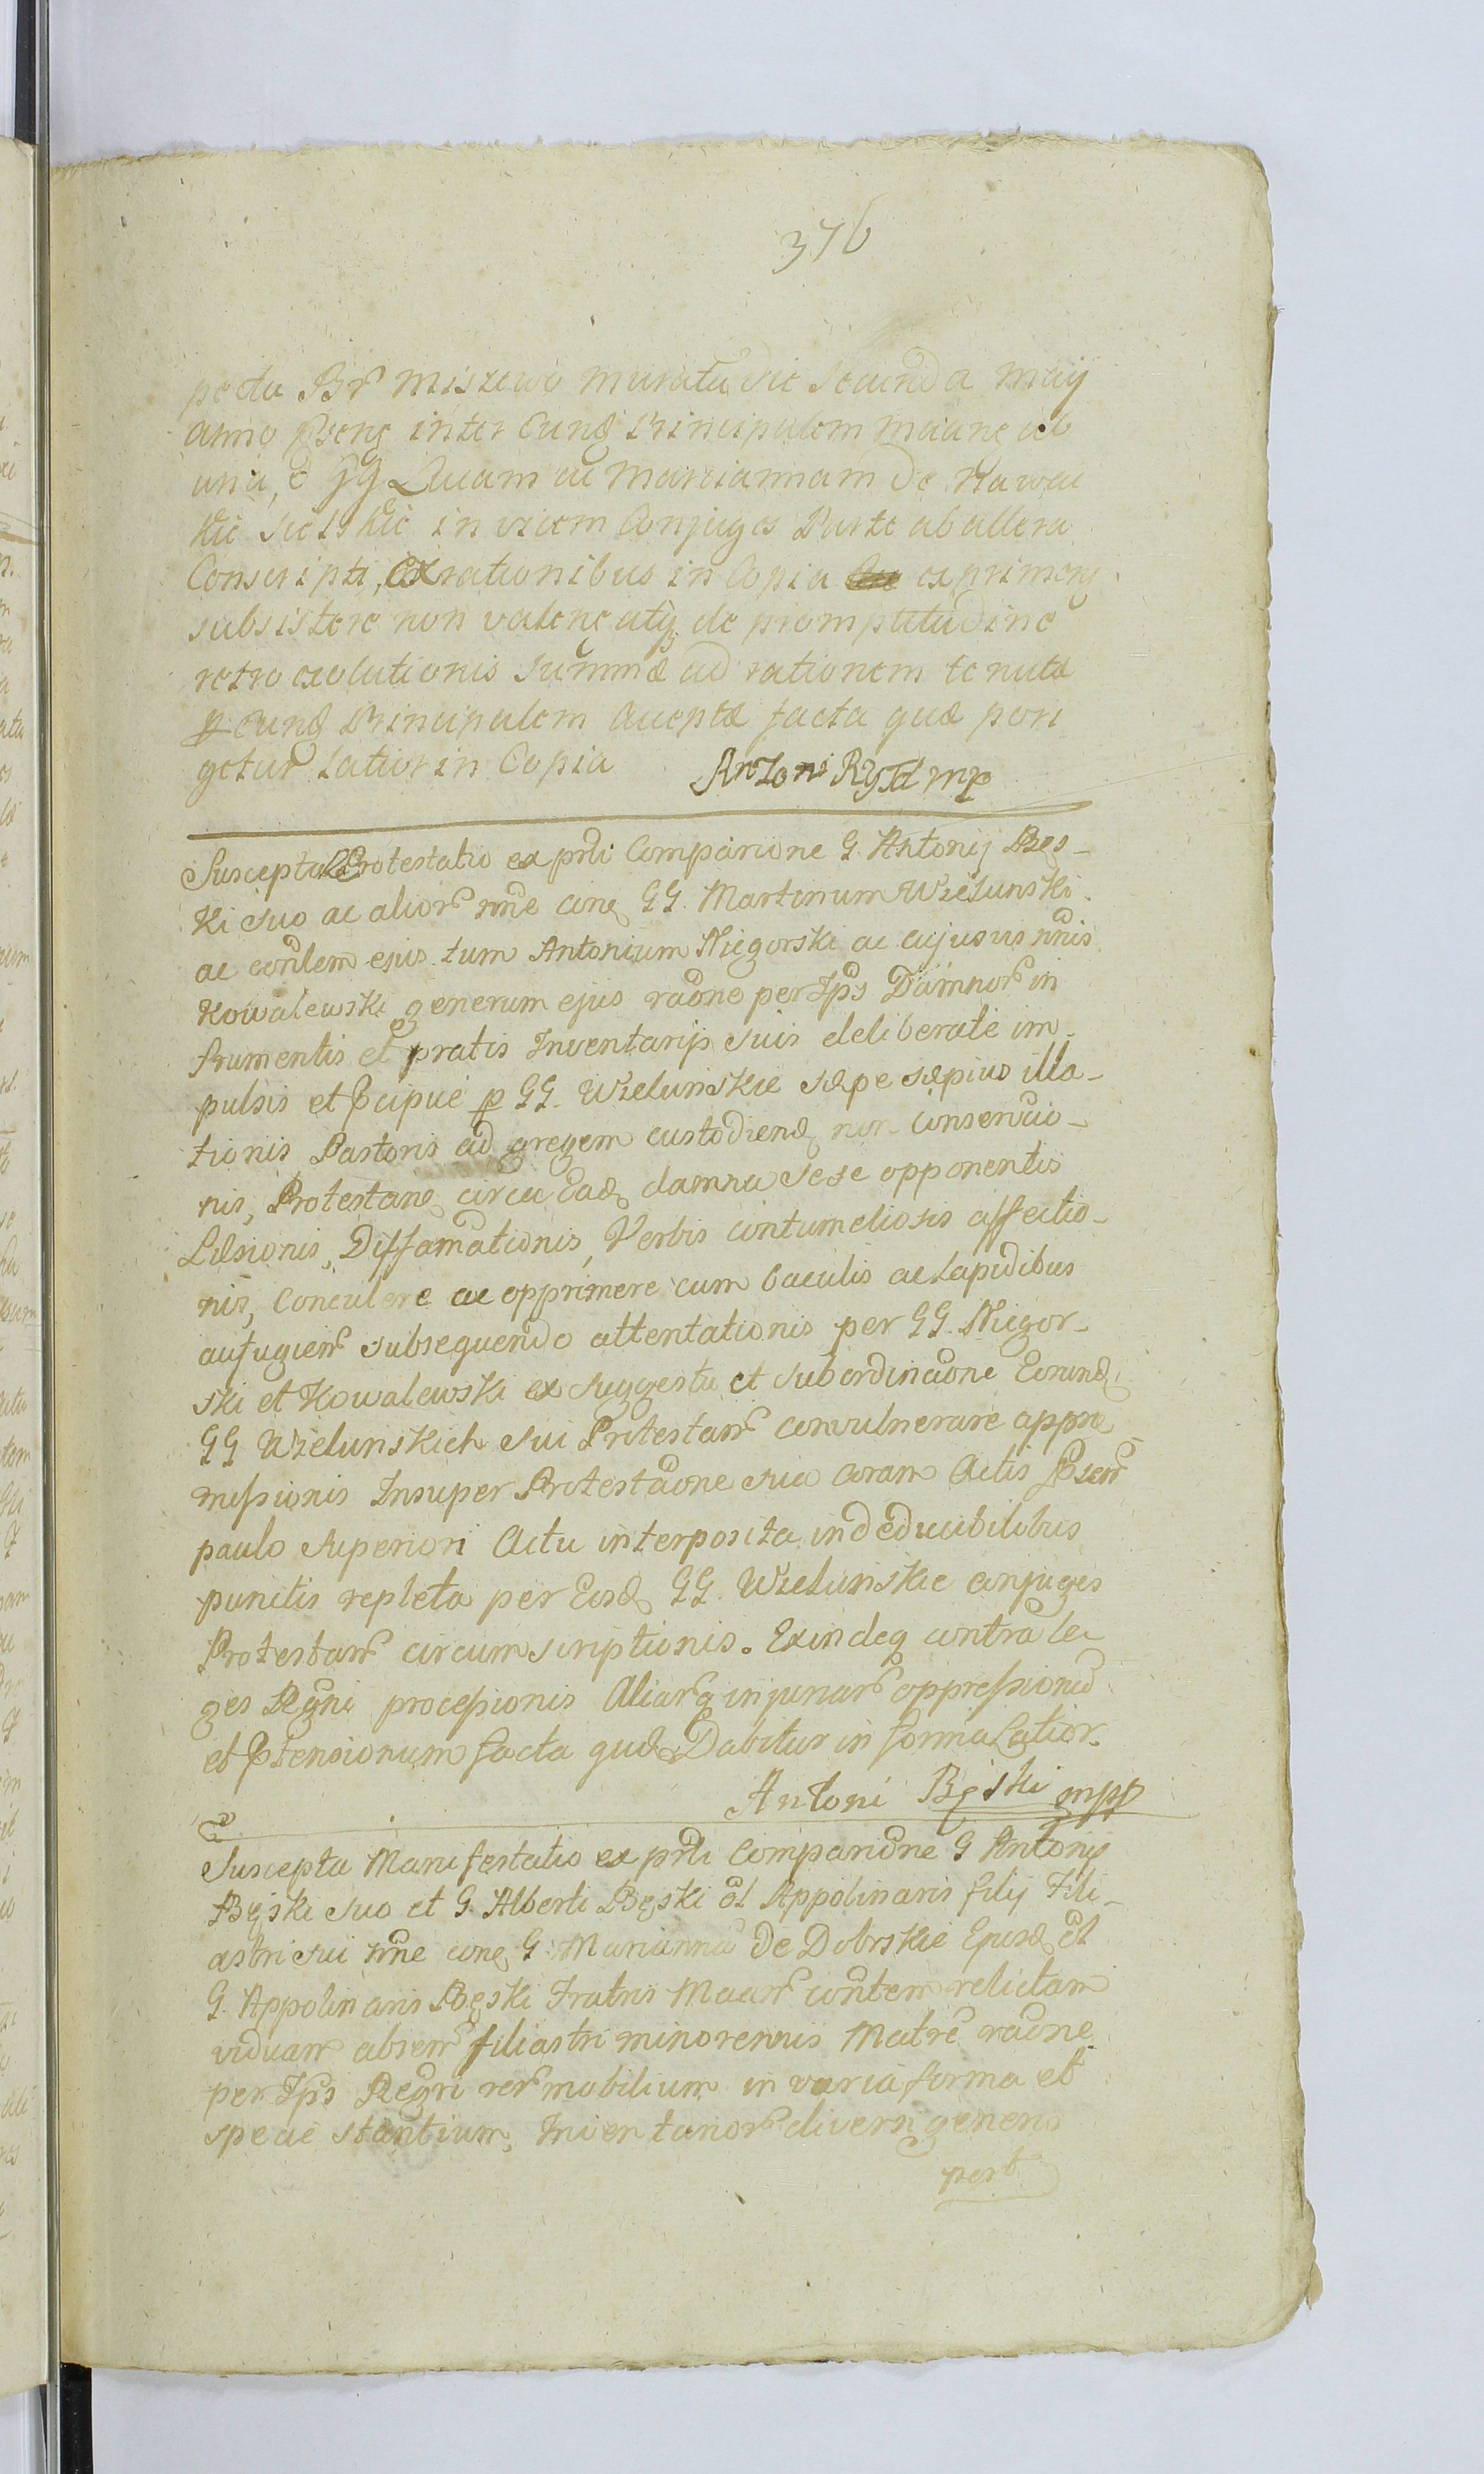 376
pecta Br Miszewo Murata die Secunda Maij
anno pseng inter Eund Principalem Maiang ab
una, et GG Lucam ac Mariannam De
in vicem Conjuges Parte ab altera
Conscripti, ex rationibus in Copia exprimeng
subsistere non valene atq de promptitudine
retro exolutionis Summæ ad rationem tenutæ
p Eund Principalem acceptæ facta quæ pori
getur latior in Copia Antoni Rystl mp
Suscepta Protestatio ex prli Comparione G. Antonij Bęs-
ki suo ac alior nne cing GG. Martinum Wielunski
ac contlem ejus tum Antonium Niegorski ac cujusvis nnis
Kowalewski generum ejus raone per Ips Damnor in
frumentis et pratis Inventarijs suis deliberate im-
pulsis et pcipue p GG. Wielunskie sæpe sæpius illa-
tionis Pastoris ad gregem custodiend non conservao-
nis, Protestang circa Ead damna sese opponentis
Læsionis, Diffamationis, Verbis contumeliosis affectio-
nis, Conculere ac opprimere cum baculis ac lapidibus
aufugien subsequendo attentationis per GG. Niegor-
ski et Kowalewski ex suggestu et subordinaone Eorund
GG Wielunskich sui Protestan convulnerare appro-
missionis Insuper Protestaone sua coram Actis psen
paulo superiori Actu interposita inddeducibilibus
punctis repleta per Eosd GG. Wielunskie conjuges
Protestan circumscriptionis. Exindeq contra le
ges Regni processionis Aliarq injuriar oppressionu
et ptensionum facta quæ Dabitur in forma Latior.
Antoni Bęski mpp
Suscepta Manifestatio ex prli Comparione G Antonij
Bęski suo et G. Alberti Bęski ol Appolinaris filij Fili-
astri sui nne cing G. Marianna De Dobrskie Ejusd ol
G. Appolinaris Bęski Fratris Maan contem relictam
viduam absen filiastri minorennis Matre raone
per Ips Regri rer mobilium in varia forma et
specie stantium, Inventarior diversi generis
post